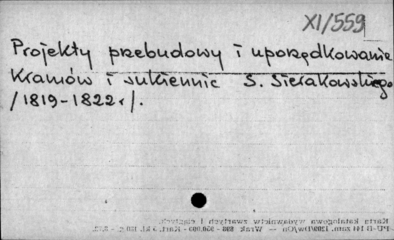 XI/559
Projekty przebudowy i uporządkowania
Kramów i sukiennic S. Sierakowskiego
/1819-1822r/.